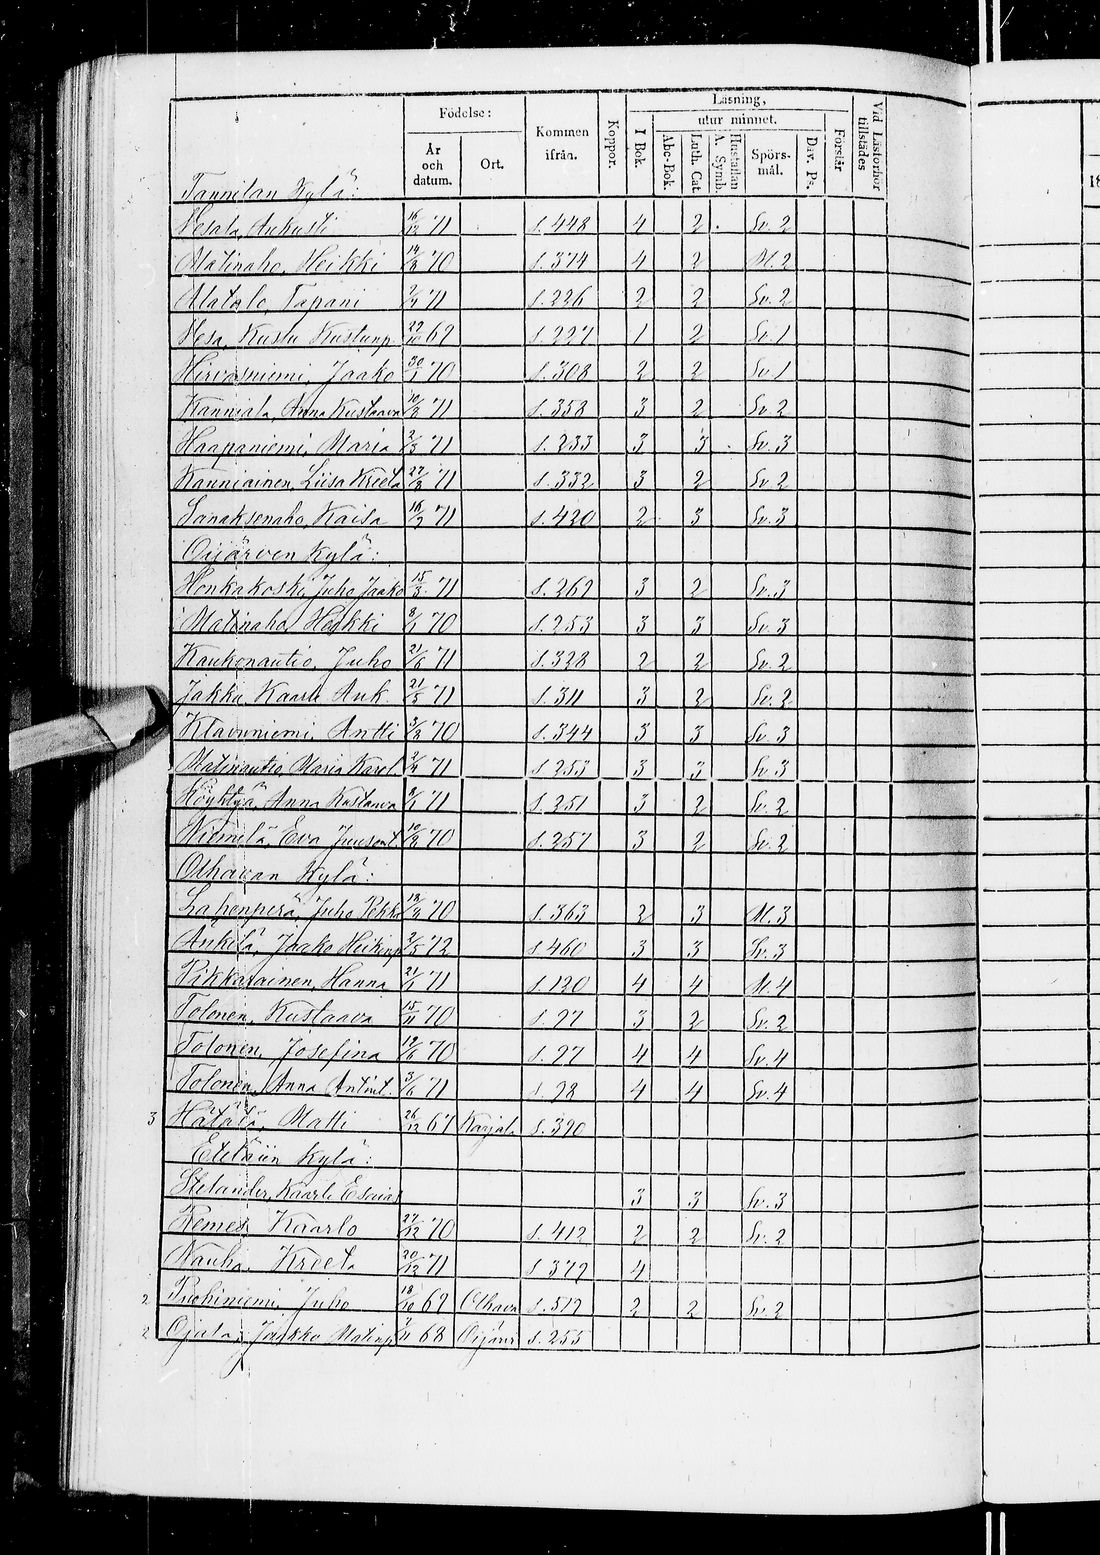 Födelse: Kommen ifrån. Koppor. Läsning, Vid Läsförhör tillstädes
År och datum. Ort. I Bok. utur minnet. Förstår
Abc-Bok. Luth. Cat. Hustaflan A. Symb. Spörs-mål. Dav. Ps.
Tannilan Kylä:
Vesala, Aukusti 16/12 71 s. 448 4 2 Sv. 2
Matinaho, Heikki 14/8 70 s. 374 4 2 M. 2
Alatalo, Tapani 2/4 71 s. 226 2 2 Sv. 2
Vesa, Kustu Kustunp. 29/10 69 s. 227 1 2 Sv. 1
Hirvasniemi, Jaako 30/1 70 s. 308 2 2 Sv. 1
Kanniala, Anna Kustaava 10/3 71 s. 358 3 2 Sv. 2
Haapaniemi, Maria 2/3 71 s. 233 3 3 Sv. 3
Kauniainen, Liisa Kreeta 27/3 71 s. 332 3 2 Sv. 2
Sanaksenaho, Kaisa 16/2 71 s. 420 2 3 Sv. 3
Oijärven Kylä:
Honkakoski, Juho Jaako 15/3 71 s. 269 3 2 Sv. 3
Matinaho, Heikki 8/1 70 s. 253 3 3 Sv. 3
Kaukonautio, Juho 21/6 71 s. 328 2 2 Sv. 2
Jakku, Kaarle Auk. 21/5 71 s. 311 3 2 Sv. 2
Klavuniemi, Antti 3/3 70 s. 344 3 3 Sv. 3
Matinautio, Maria Karol. 2/4 71 s. 253 3 3 Sv. 3
Höyhtyä, Anna Kustaava 8/1 71 s. 251 3 2 Sv. 2
Niemelä, Eva 10/3 70 s. 257 3 2 Sv. 2
Olhavan Kylä:
Lahenperä, Juho Pekka 70 s. 363 2 3 M. 3
Änkilä, Jaako Heikinp. 2/5 72 s. 460 3 3 Sv. 3
Pikkarainen, Hanna 21/1 71 s. 120 4 4 M. 4
Tolonen, Kustaava 15/11 70 s. 27 3 2 Sv. 2
Tolonen, Josefina 19/6 70 s. 27 4 4 Sv. 4
Tolonen, Anna Antint. 3/6 71 s. 28 4 4 Sv. 4
3 Hätälä, Matti 26/12 67 Karjal. s. 390
Eteläiin Kylä:
Stelander, Kaarle Esaias 3 3 Sv. 3
Remes, Kaarlo 27/12 70 s. 412 2 2 Sv. 2
Nauha, Kreeta 20/12 71 s. 379 4
2 Puohiniemi, Juho 18/10 69 Olhava s. 519 2 2 Sv. 2
2 Ojala, Jaakko Matinp. 68 Oijärv. s. 255
18